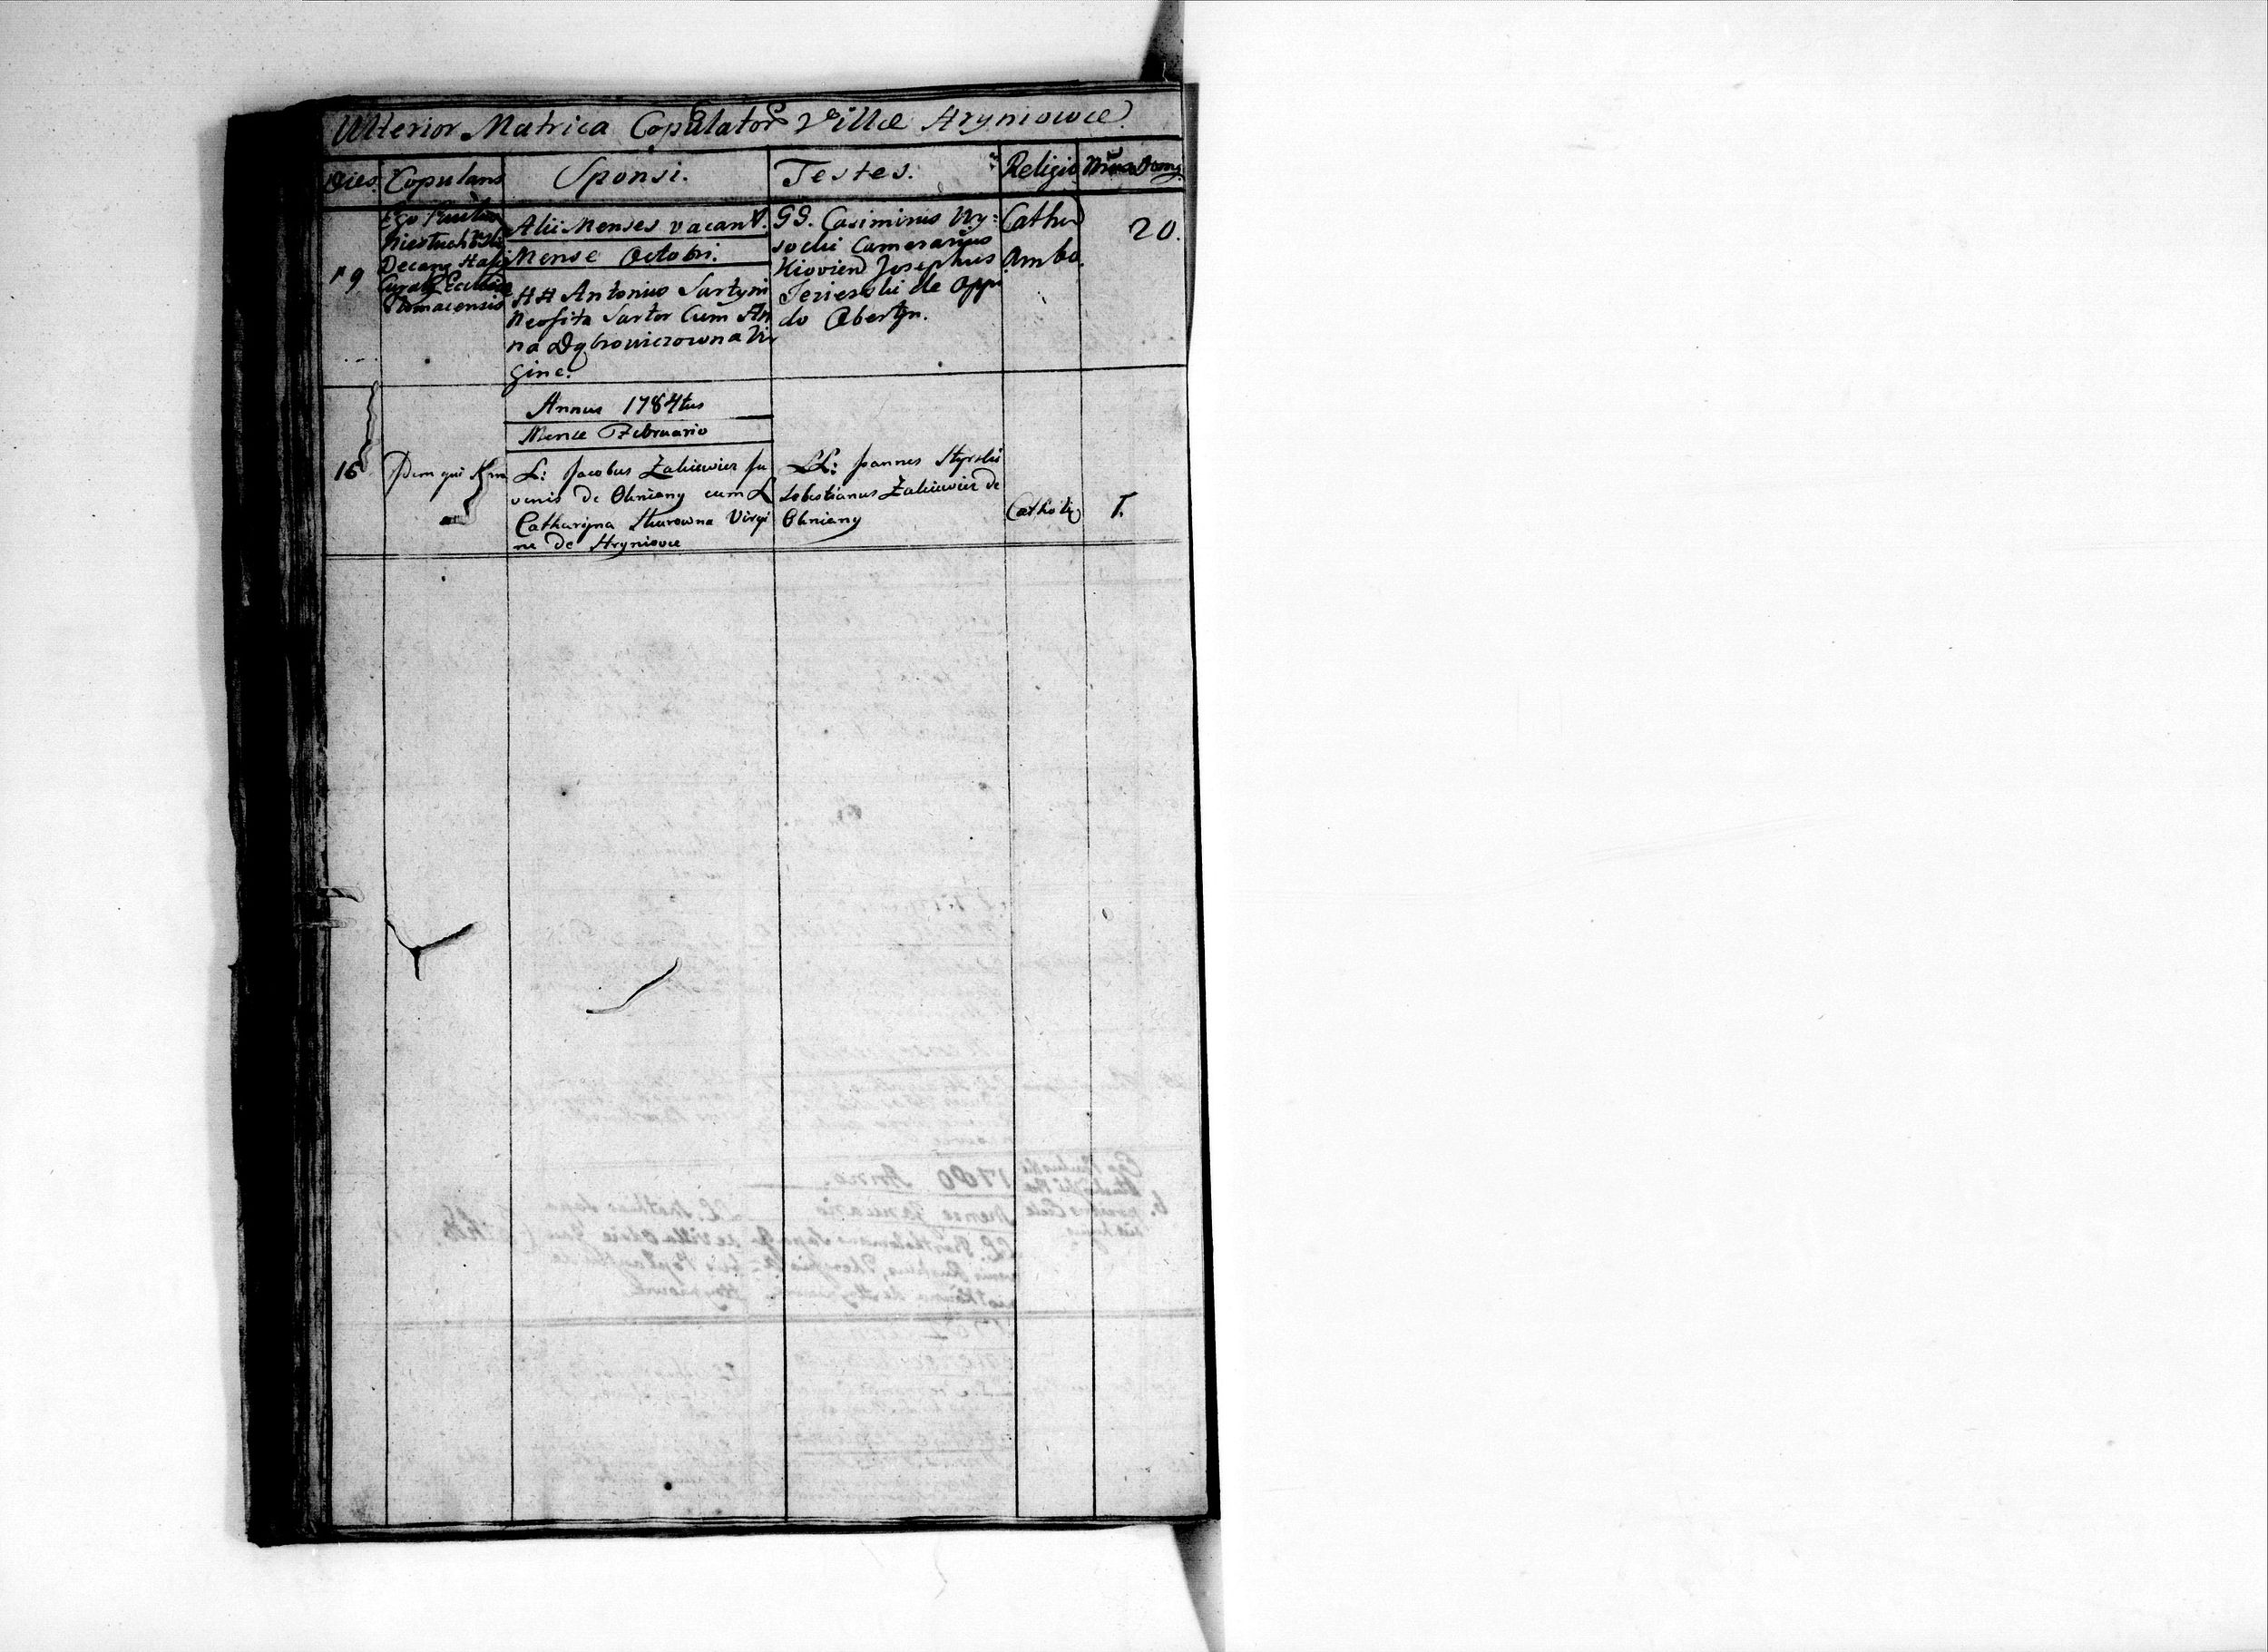 Ulterior Matrica Copulator Villæ Hryniowce.
Dies. Copulans Sponsi. Testes. Religio Nrus Domg.
19
Ego Paulus
Decang Hali
Curatg Ecclesiæ
Alii Menses vacant.
Mense Octobri.
HH Antonius Sartyni
Neofita Sartor Cum An
na Dąbrowiczowna Vir
gine.
GG. Casimirus Wy=
socki Camerarius
Kiovien Josephus
Jezierski de Oppi
do Obertyn.
Cathol
Ambo.
20.
Annus 1784tus
Mense Februario
16
Idem qui supra
L: Jacobus Zakiewicz Ju
venis de Okniany cum L
Catharyna Sturowna Virgi
ne de Hryniowce
LL: Joannes Styrski
Sebastianus Zakiewicz de
Okniany
Catholic
1.